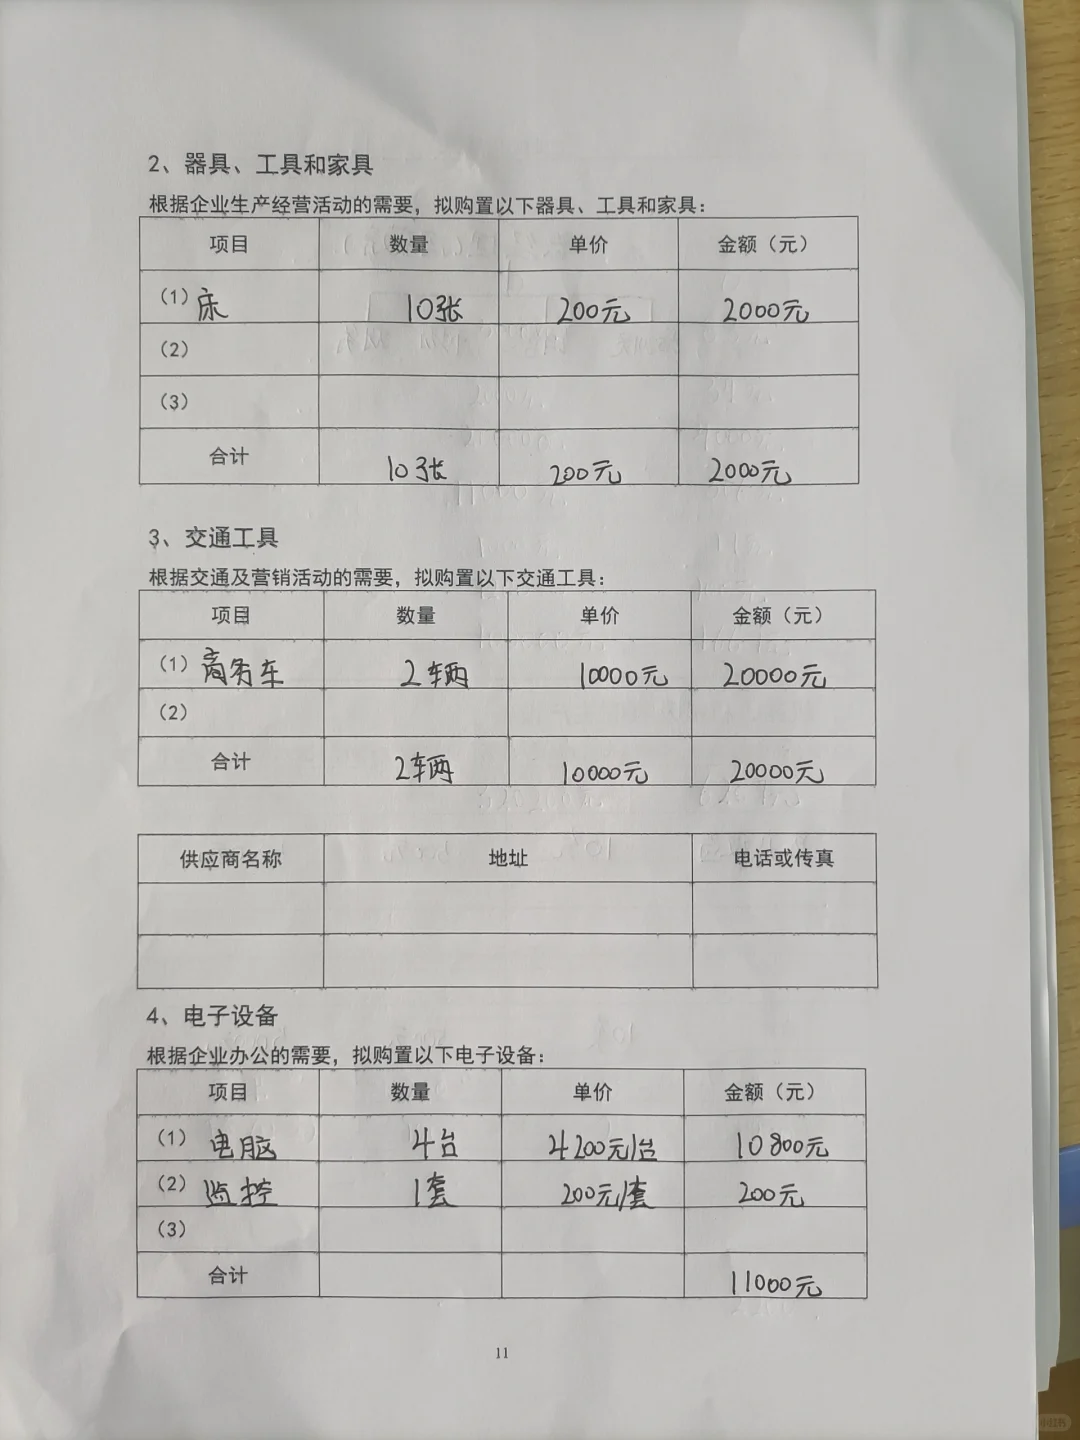 2、器具、工具和家具
根据企业生产经营活动的需要，拟购置以下器具、工具和家具：
项目 数量 单价 金额（元）
（1）床 10张 200元 2000元
（2）
（3）
合计 10张 200元 2000元
3、交通工具
根据交通及营销活动的需要，拟购置以下交通工具：
项目 数量 单价 金额（元）
（1）商务车 2车两 10000元 20000元
（2）
合计 2车两 10000元 20000元
供应商名称 地址 电话或传真
4、电子设备
根据企业办公的需要，拟购置以下电子设备：
项目 数量 单价 金额（元）
（1）电脑 4台 4200元/台 10800元
（2）监控 1套 200元/套 200元
（3）
合计 11000元
11